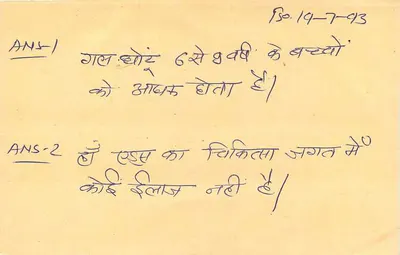 दि. 19-7-93
ANS-1 गल घोंटू 6 से 8 वर्ष के बच्चों
को अधिक होता है।
ANS-2 हाँ एड्स का चिकित्सा जगत में
कोई ईलाज नहीं है।